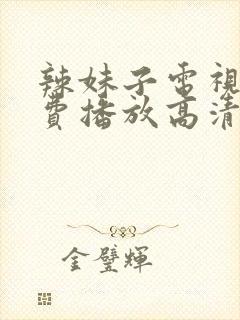 辣妹子電視
費播放高清
金璧輝